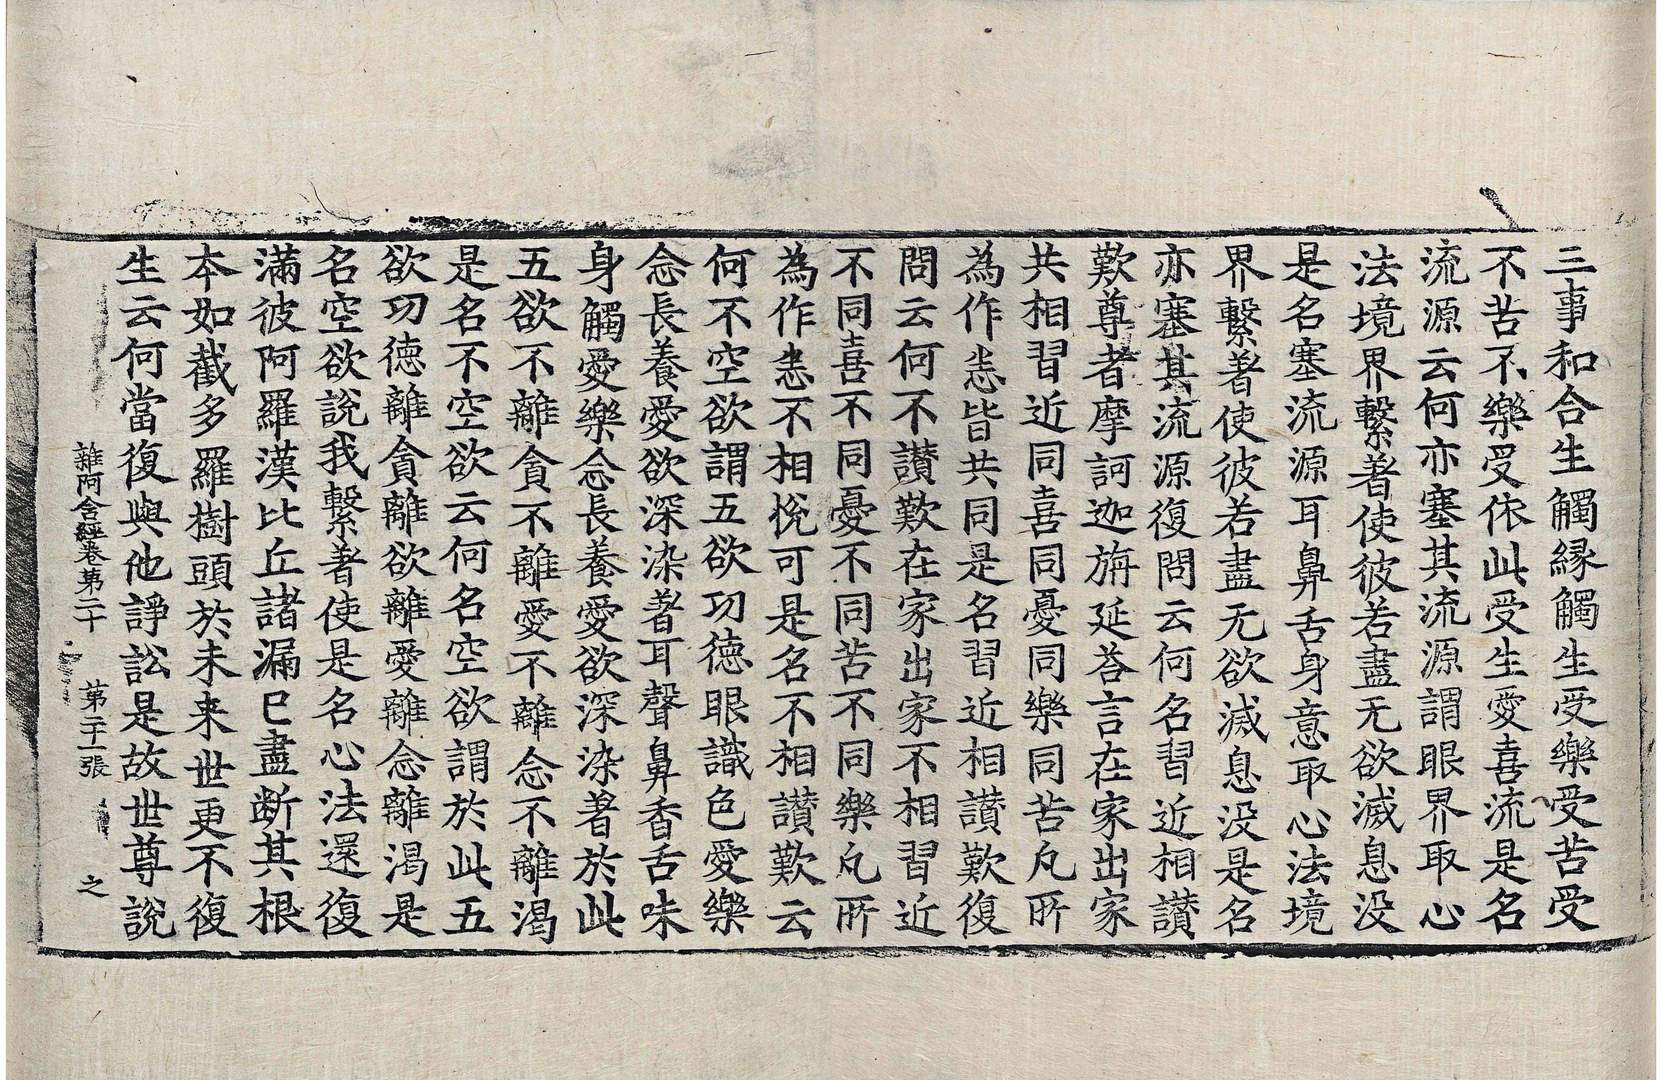 三事和合生觸緣觸生受樂受苦受
不苦不樂受依此受生愛喜流是名
流源云何亦塞其流源謂眼界取心
法境界繫著使彼若盡无欲滅息没
是名塞流源耳鼻舌身意取心法境
界繫著使彼若盡无欲滅息没是名
亦塞其流源復問云何名習近相讃
歎尊者摩訶迦旃延荅言在家出家
共相習近同喜同憂同樂同苦凡所
為作悉皆共同是名習近相讃歎復
問云何不讃歎在家出家不相習近
不同喜不同憂不同苦不同樂凡所
為作悉不相悅可是名不相讃歎云
何不空欲謂五欲功德眼識色愛樂
念長養愛欲深染著耳聲鼻香舌味
身觸愛樂念長養愛欲深染著於此
五欲不離貪不離愛不離念不離渴
是名不空欲云何名空欲謂於此五
欲功德離貪離欲離愛離念離渴是
名空欲說我繫著使是名心法還復
滿彼阿羅漢比丘諸漏已盡断其根
本如截多羅樹頭於未来世更不復
生云何當復與他諍訟是故世尊說
雜阿含經卷第二十 第二十一張 之